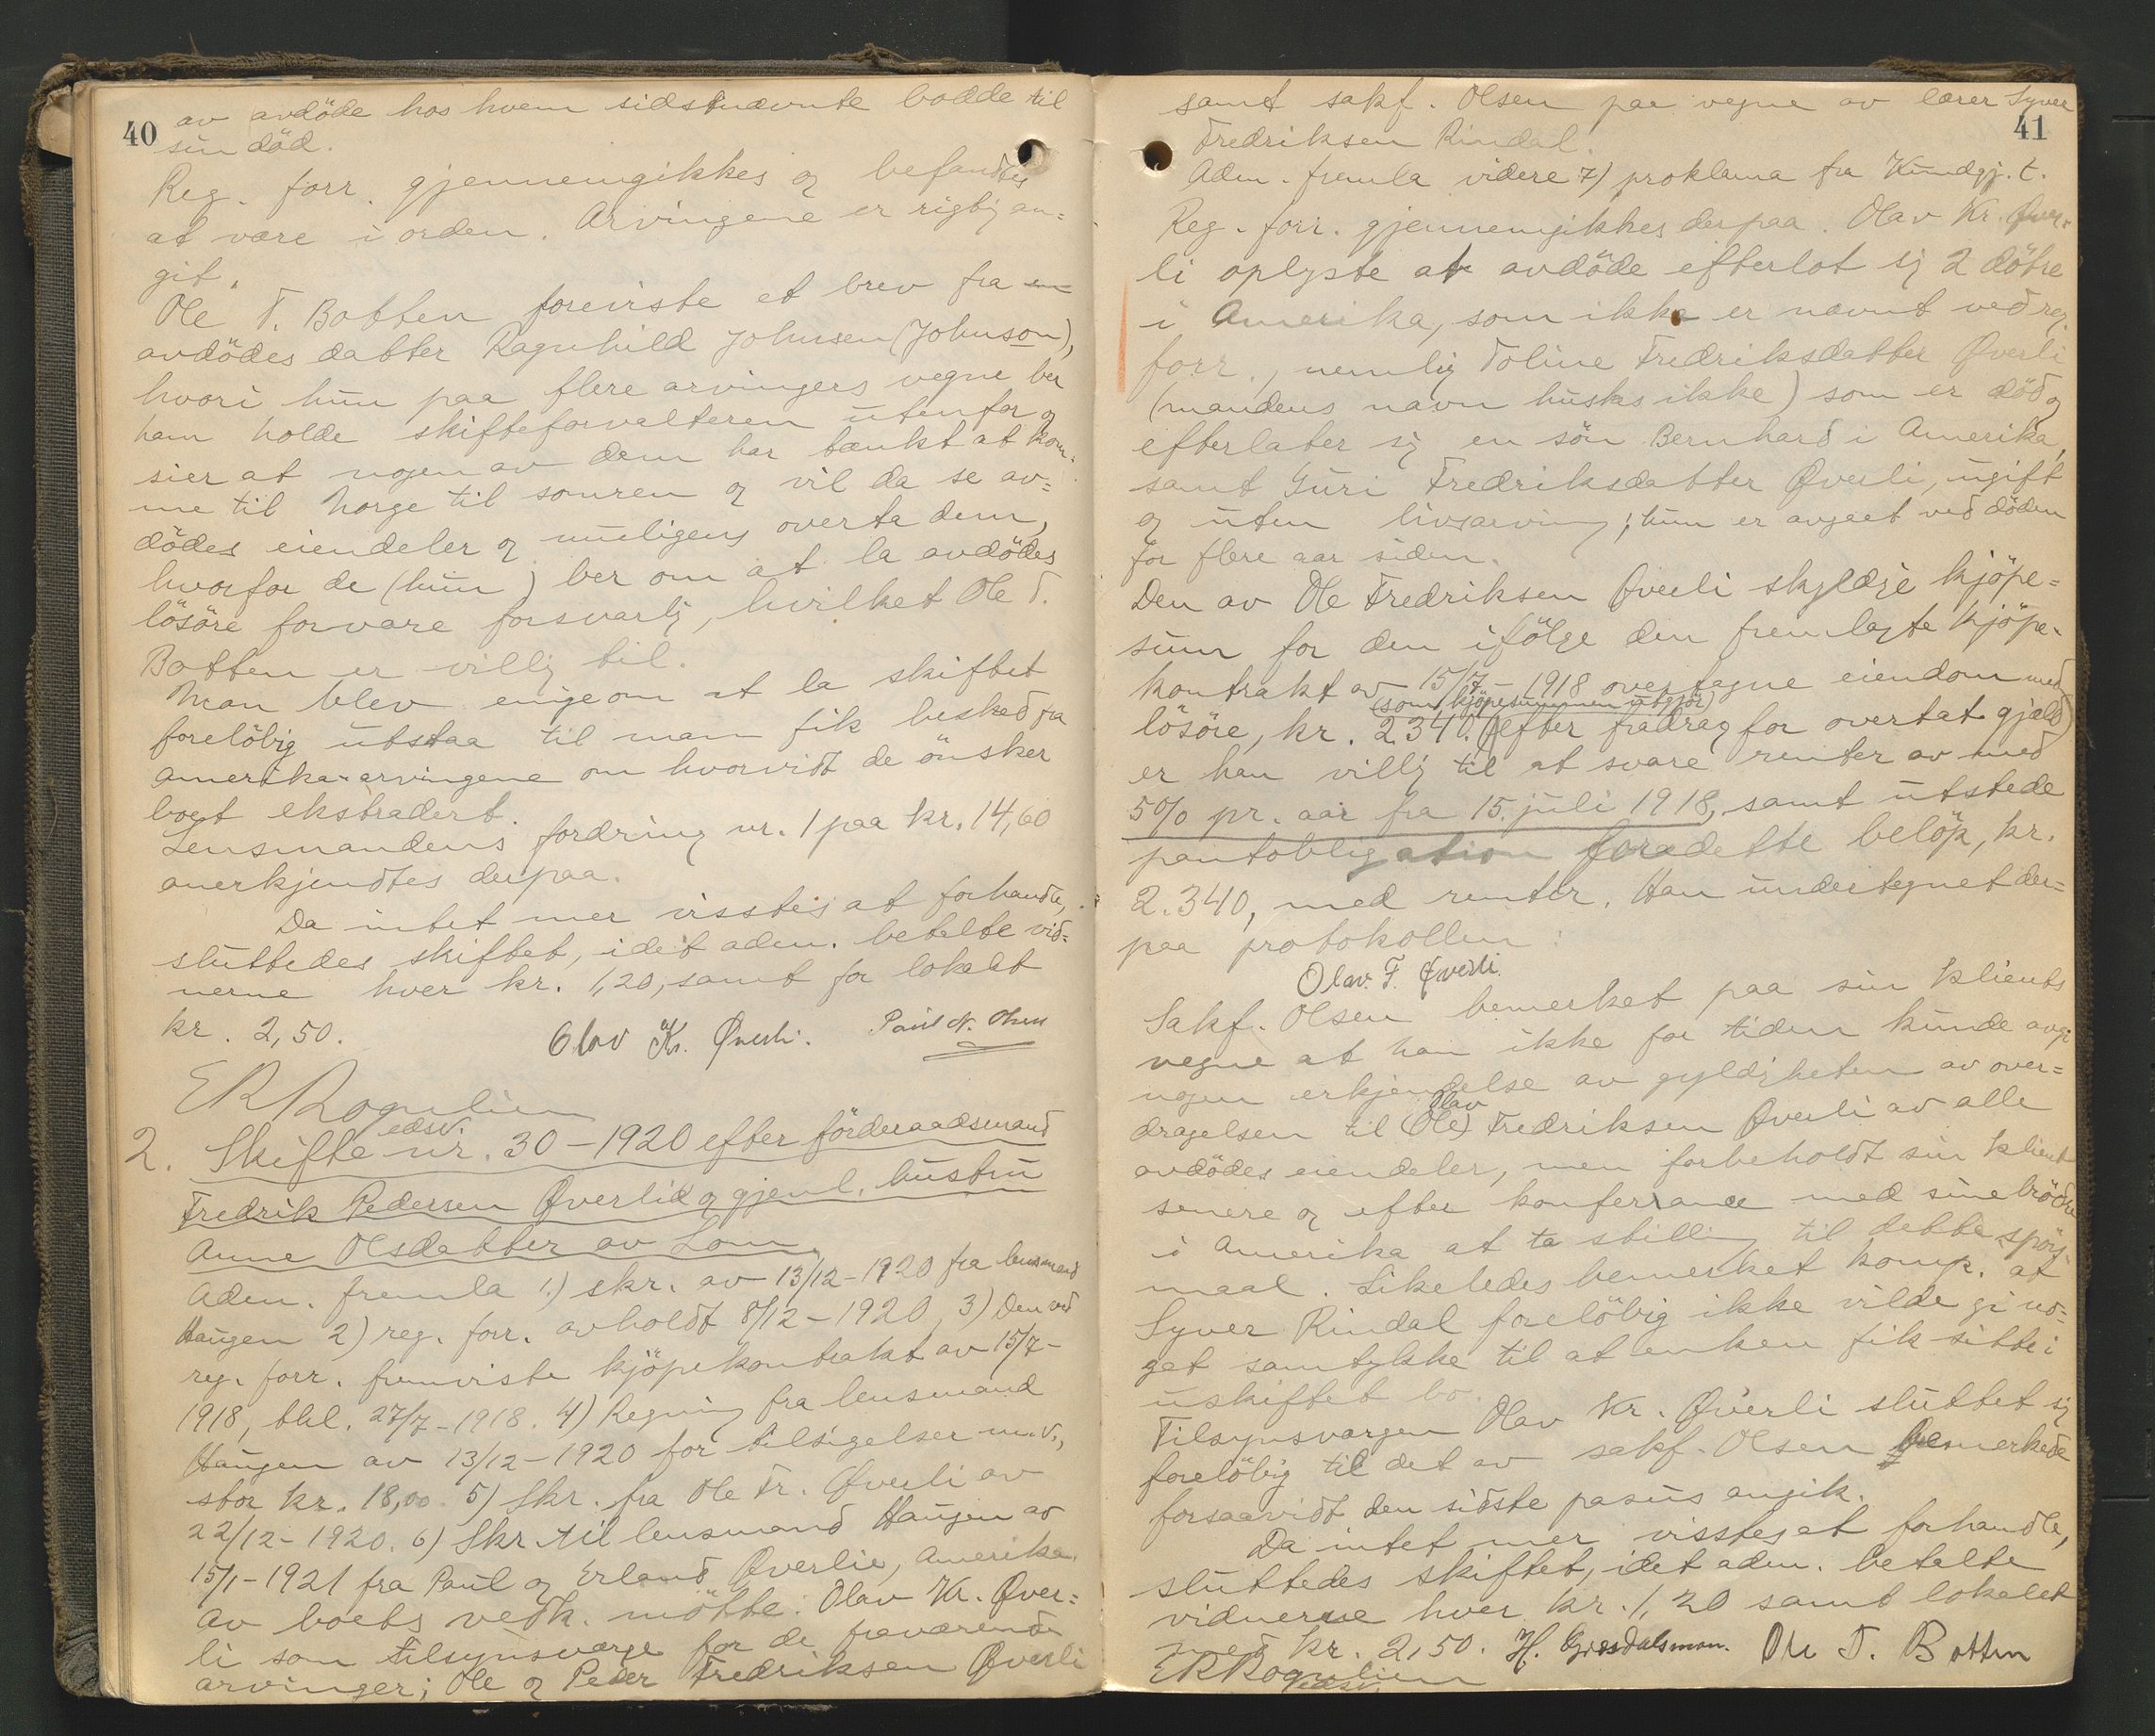 40
av avdöde hos hvem sidstnævnte bodde til
sin död.
Reg. forr. gjennemgikkes og befandtes
at være i orden. Arvingene er rigtig an=
git.
Ole T. Botten foreviste et brev fra en
avdödes datter Ragnhild Johnsen (Johnson),
hvori hun paa flere arvingers vegne ber
ham holde skifteforvalteren utenfor og
sier at nogen av dem har tænkt at kom=
me til Norge til somren og vil da se av=
dödes eiendeler og muligens overta dem,
hvorfor de (hun) ber om at la avdödes
lösöre forvare forsvarlig, hvilket Ole T.
Botten er villig til.
Man blev enige om at la skiftet
forelöbig utstaa til man fik besked fra
Amerika-arvingene om hvorvidt de önsker
boet ekstradert.
Lensmandens fordring nr. 1 paa kr. 14,60
anerkjendtes derpaa.
Da intet mer visstes at forhandle,
sluttedes skiftet, idet adm. betalte vid=
nerne hver kr. 1,20, samt for lokalet
kr. 2,50.
Olav Kr. Øverli. Paul N. Olsen
E R Rognlien
edsv.
2. Skifte nr. 30 - 1920 efter förderaadsmand
Fredrik Pedersen Øverlie og gjenl. hustru
Anne Olsdatter av Lom
Adm. fremla 1.) skr. av 13/12 - 1920 fra lensmand
Haugen 2) reg. forr. avholdt 8/12 - 1920, 3) Den ved
reg. forr. fremviste kjöpekontrakt av 15/7 -
1918, thl. 27/7 - 1918. 4) Regning fra lensmand
Haugen av 13/12 - 1920 for tilsigelser m.v.,
stor kr. 18,00. 5) Skr. fra Ole Fr. Øverli av
22/12 - 1920. 6) Skr. til lensmand Haugen av
15/1 - 1921 fra Paul og Erland Øverlie, Amerika.
Av boets vedk. mötte: Olav Kr. Øver=
li som tilsynsværge for de fraværende
arvinger; Ole og Peder Fredriksen Øverli
41
samt sakf. Olsen paa vegne av lærer Syver
Fredriksen Rindal.
Adm. fremla videre 7) proklama fra Kundgj. t.
Reg. forr. gjennemgikkes derpaa. Olav Kr. Øver=
li oplyste at avdöde efterlot sig 2 dötre
i Amerika, som ikke er nævnt ved reg.
forr., nemlig Toline Fredriksdatter Øverli
(mandens navn huskes ikke) som er död og
efterlater sig en sön Bernhard i Amerika,
samt Guri Fredriksdatter Øverli, ugift
og uten livsarving; hun er avgaat ved döden
for flere aar siden.
Den av Ole Fredriksen Øverli skyldige kjöpe=
sum for den ifölge den fremlagte kjöpe-
kontrakt av 15/7 - 1918 overtagne eiendom med
(som kjöpesummen utgjör)
lösöre, kr. 2.340. (efter fradrag for overtat gjæld)
er han villig til at svare renter av med
5% pr. aar fra 15. juli 1918, samt utstede
pantobligation for dette belöp, kr.
2.340, med renter. Han undertegnet der=
paa protokollen:
Olav. F. Øverli.
Sakf. Olsen bemerket paa sin klients
vegne at han ikke for tiden kunde avgi
nogen erkjendelse av gyldigheten av over=
Olav
dragelsen til (Ole) Fredriksen Øverli av alle
avdödes eiendeler, men forbeholdt sin klient
senere og efter konferrance med sine brödre
i Amerika at ta stilling til dette spörs=
maal. Likeledes bemerket komp. at
Syver Rindal forelöbig ikke vilde gi no=
get samtykke til at enken fik sitte i
uskiftet bo.
Tilsynsværgen Olav Kr. Øverli sluttet sig
forelöbig til det av sakf. Olsen bemerkede
forsaavidt den sidste pasus angik.
Da intet mer visstes at forhandle,
sluttedes skiftet, idet adm. betalte
vidnerne hver kr. 1,20 samt lokalet
med kr. 2,50. H. Gjesdalsmoen. Ole T. Botten
E R Rognlien
edsv.